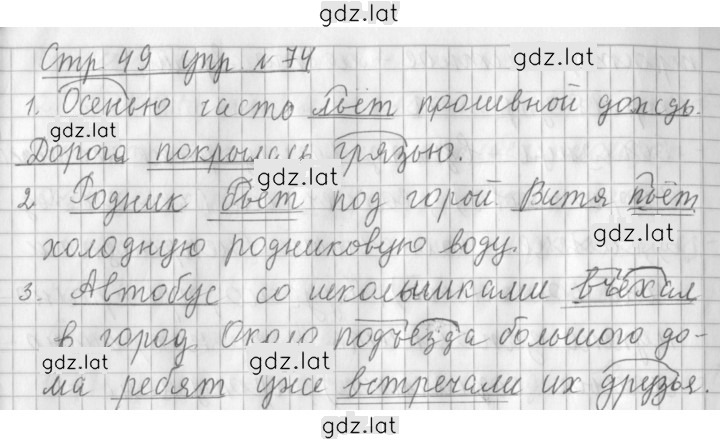 gdz.lat
gdz.lat
Стр 49 упр №74
1. Осенью часто льёт проливной дождь.
gdz.lat
Дорога покрылась грязью.
gdz.lat
2 Родник бьёт под горой. Витя пьёт
gdz.lat
холодную родниковую воду.
3. Автобус со школьниками въехал
в город. Около подъезда большого до-
gdz.lat
gdz.lat
gdz.lat
ма ребят уже встречали их друзья.
gdz.lat